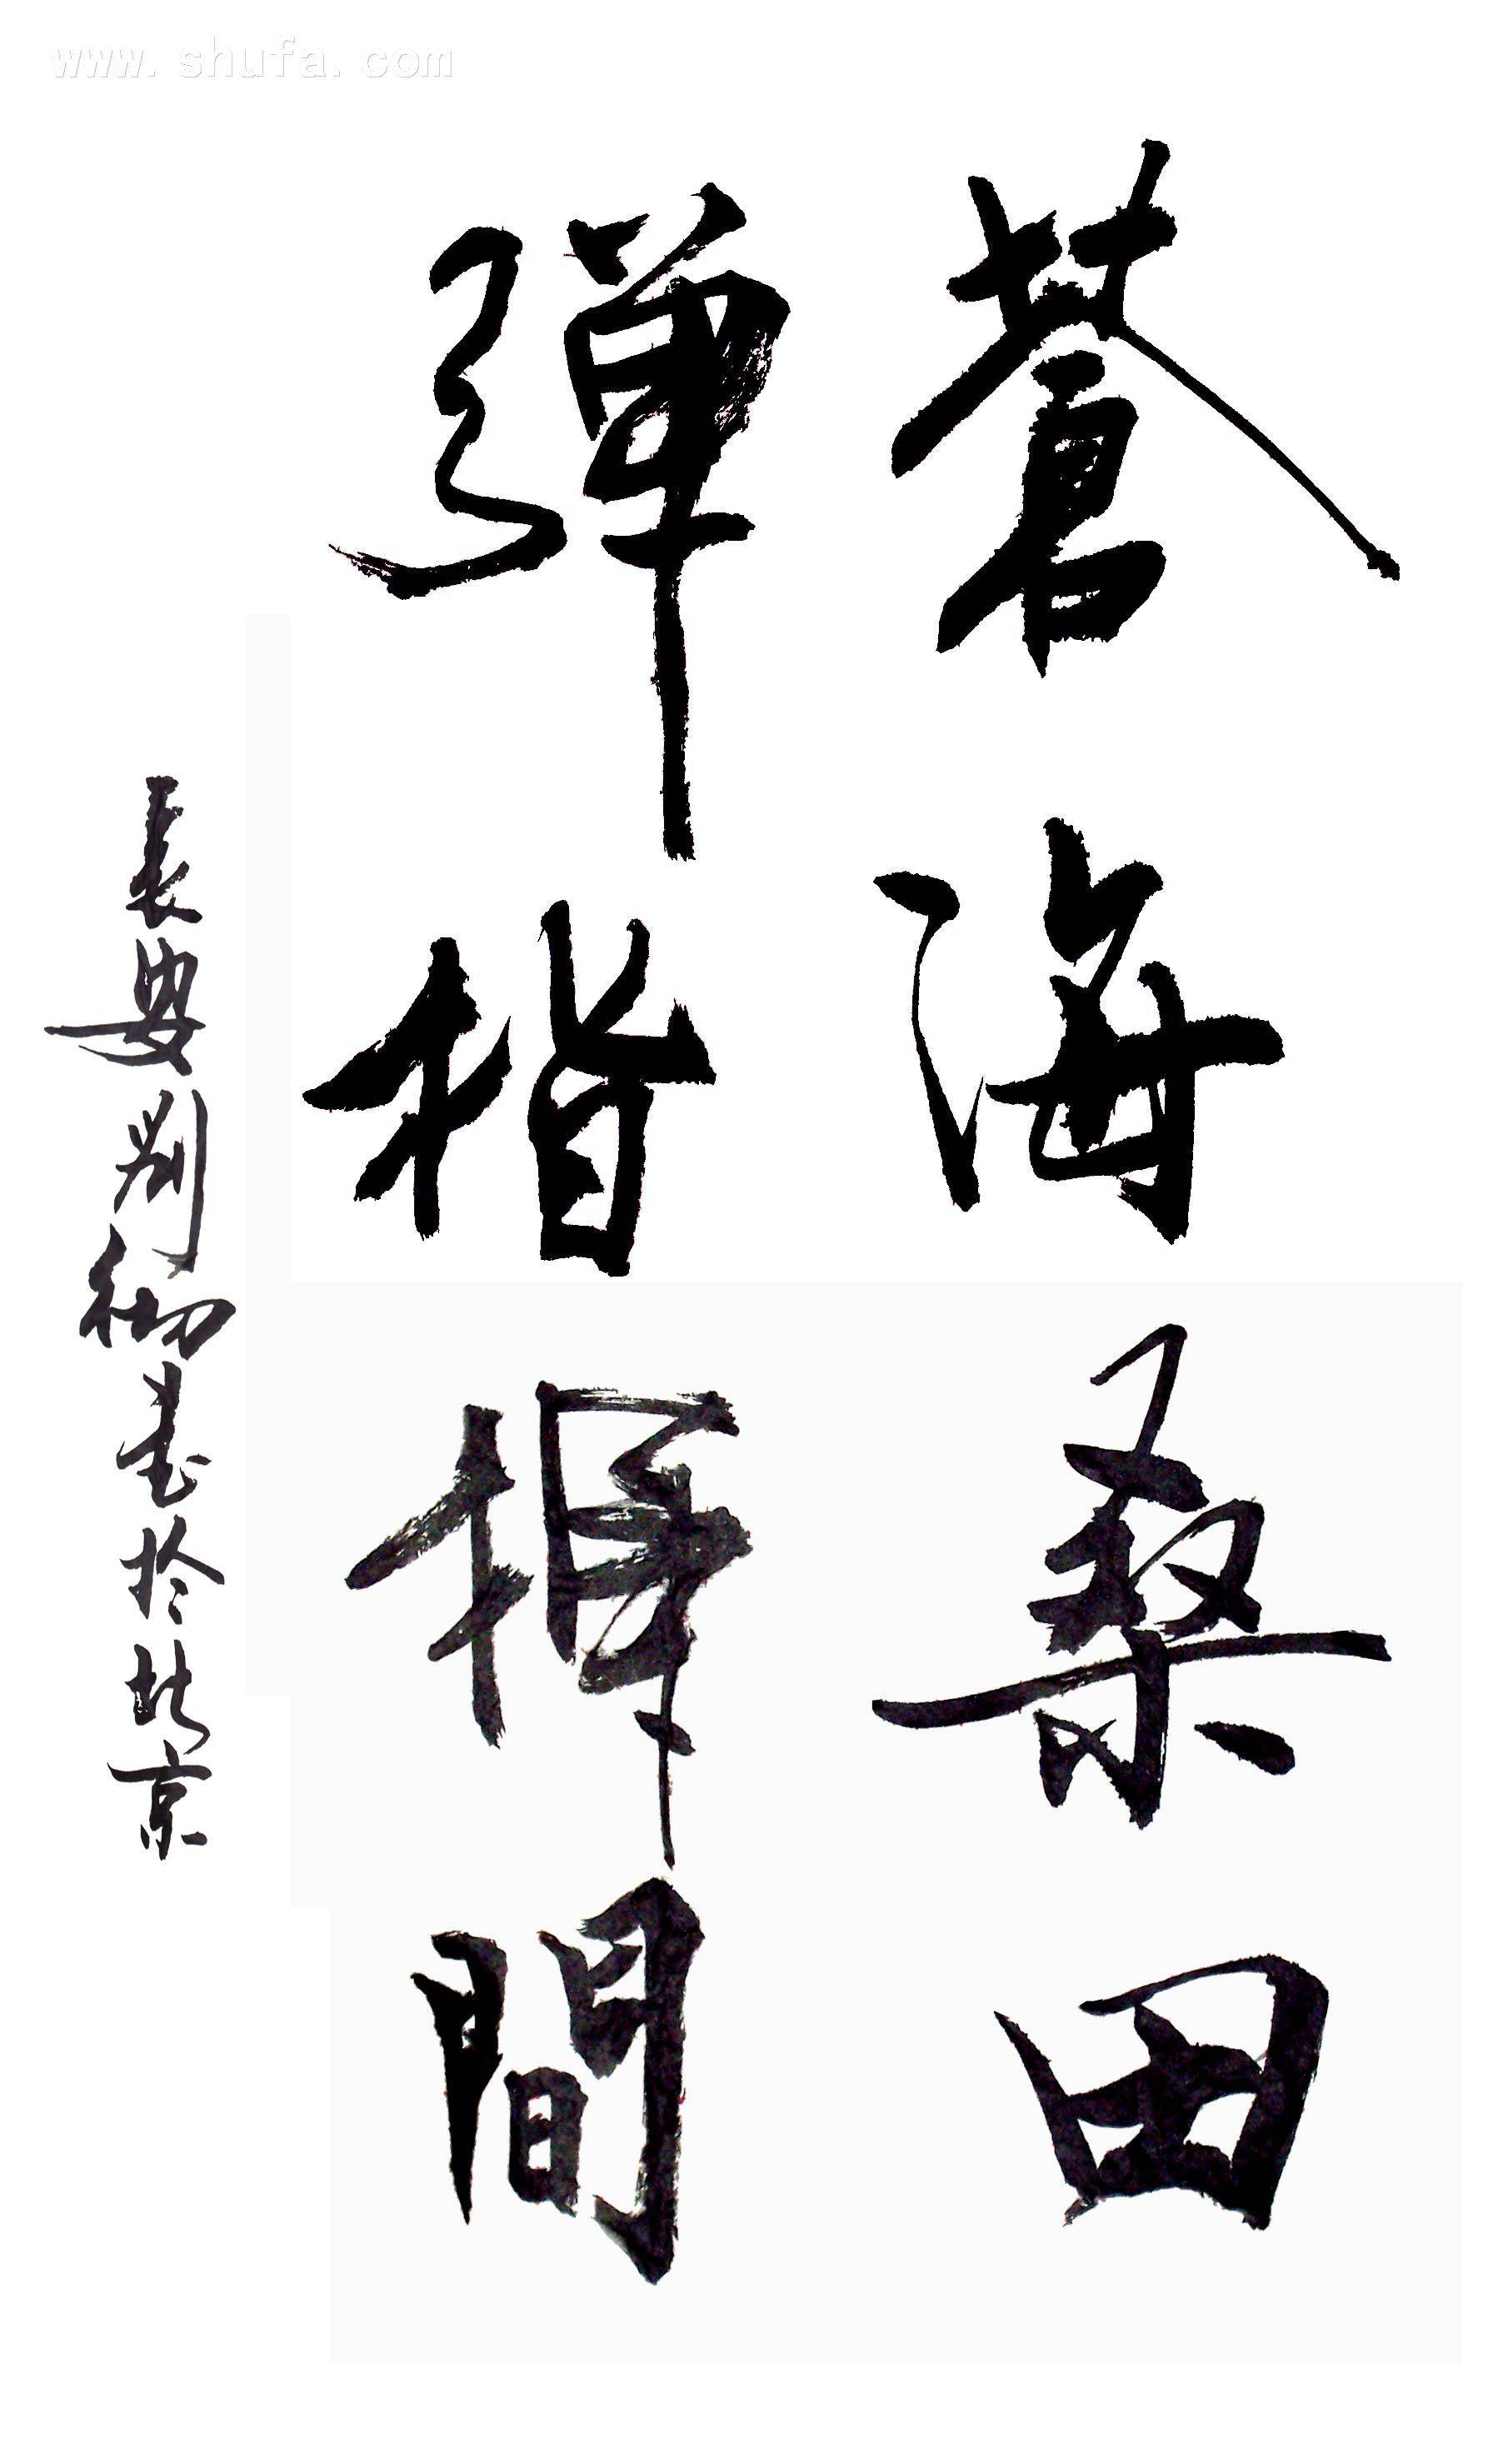 www.shufa.com
蒼海桑田
彈指揮間
長安劉御書於北京